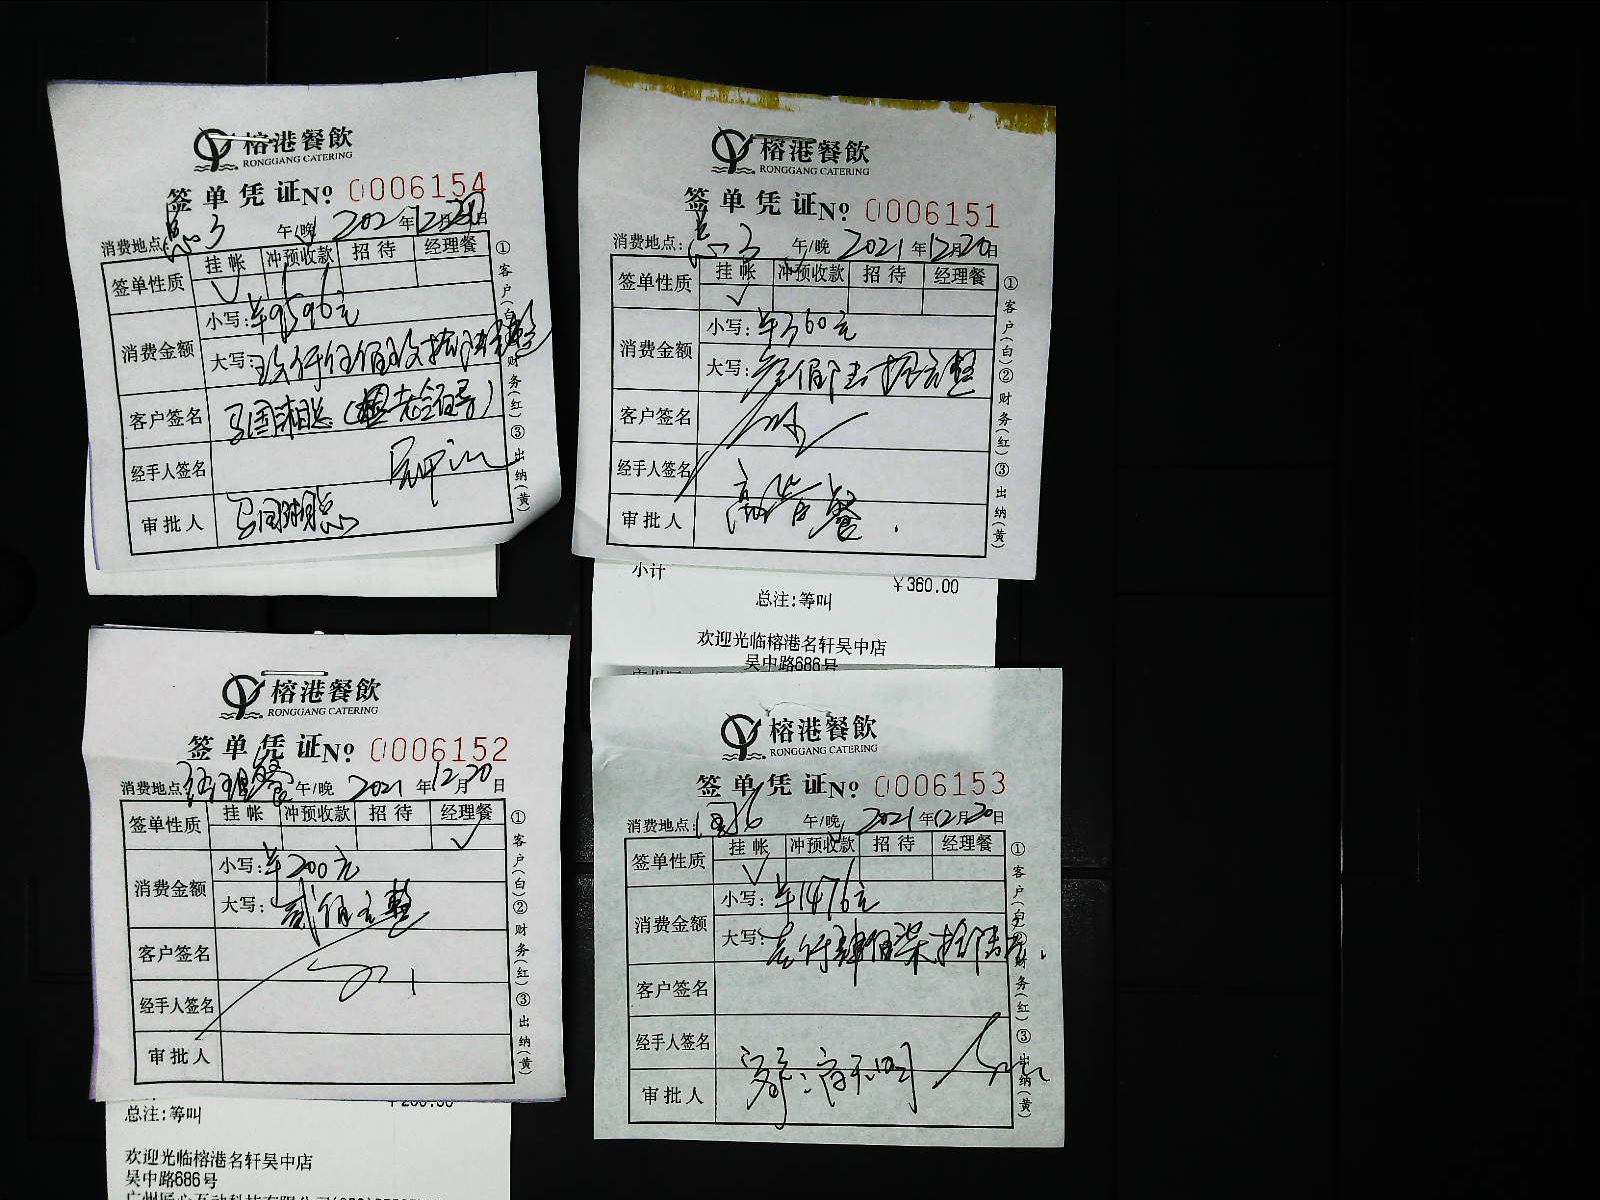 榕港餐飲
RONGGANG CATERING
签单凭证 No 0006154
消费地点: 总3 午/晚 2021年12月20日
签单性质 挂帐 冲预收款 招待 经理餐
√
消费金额 小写: ¥9596元
大写: 玖仟伍佰玖拾陆元整
客户签名
经手人签名
审批人
①客户(白)②财务(红)③出纳(黄)
榕港餐飲
RONGGANG CATERING
签单凭证 No 0006151
消费地点: 总3 午/晚 2021年12月20日
签单性质 挂帐 冲预收款 招待 经理餐
√
消费金额 小写: ¥360元
大写: 叁佰陆拾元整
客户签名
经手人签名
审批人 高管餐
①客户(白)②财务(红)③出纳(黄)
小计 ¥360.00
总注:等叫
欢迎光临榕港名轩吴中店
吴中路686号
榕港餐飲
RONGGANG CATERING
签单凭证 No 0006152
消费地点: 经理餐 午/晚 2021年12月20日
签单性质 挂帐 冲预收款 招待 经理餐
√
消费金额 小写: ¥200元
大写: 贰佰元整
客户签名
经手人签名
审批人
①客户(白)②财务(红)③出纳(黄)
总注:等叫
欢迎光临榕港名轩吴中店
吴中路686号
榕港餐飲
RONGGANG CATERING
签单凭证 No 0006153
消费地点: 国6 午/晚 2021年12月20日
签单性质 挂帐 冲预收款 招待 经理餐
√
消费金额 小写: ¥1476元
大写: 壹仟肆佰柒拾陆元
客户签名
经手人签名
审批人
①客户(白)②财务(红)③出纳(黄)